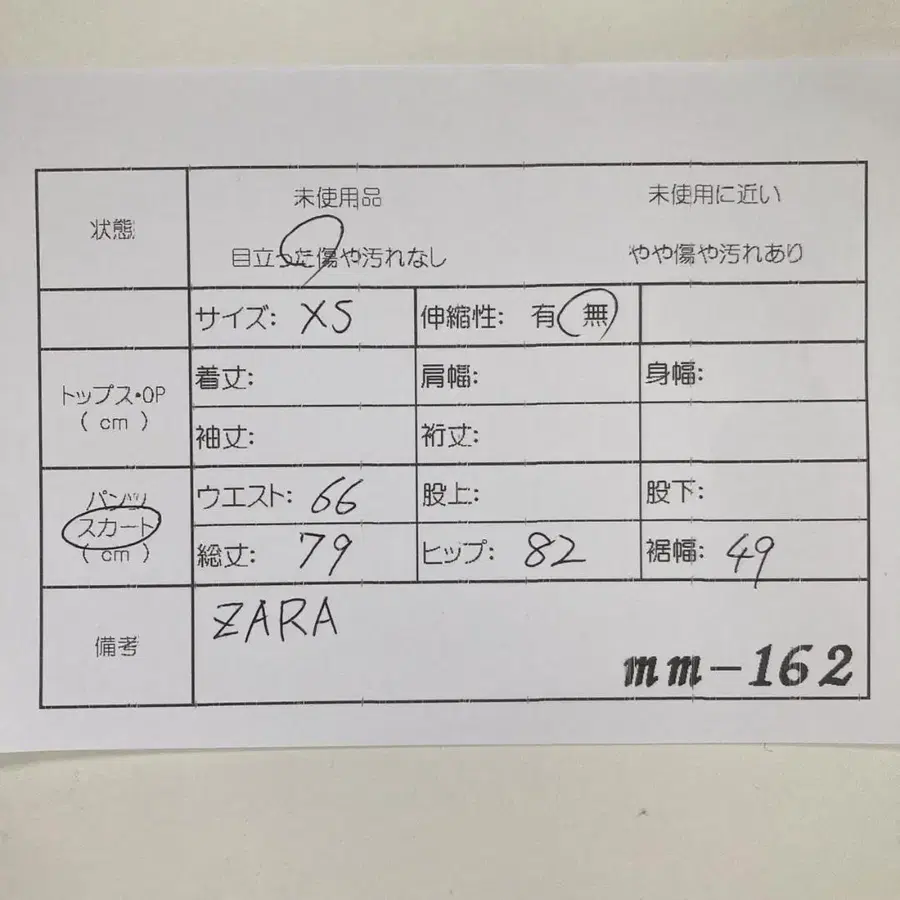 状態
未使用品 未使用に近い
目立った傷や汚れなし やや傷や汚れあり
サイズ: XS 伸縮性: 有 無
トップス・OP
( cm )
着丈: 肩幅: 身幅:
袖丈: 裄丈:
パンツ
スカート
( cm )
ウエスト: 66 股上: 股下:
総丈: 79 ヒップ: 82 裾幅: 49
備考
ZARA
mm-162